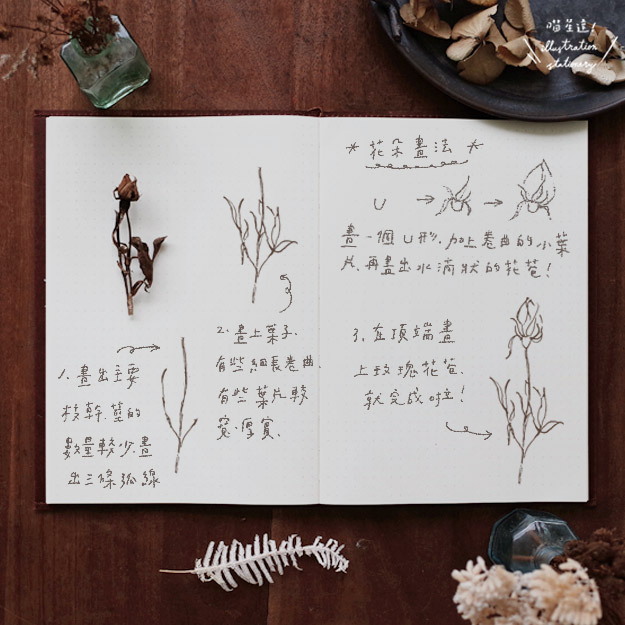 喵星達!
illustration
stationery
1. 畫出主要
枝幹.莖的
數量較少.畫
出三條弧線
2. 畫上葉子.
有些細長卷曲.
有些葉片較
寬.厚實.
*花朵畫法*
U
畫一個U形.加上卷曲的小葉
片.再畫出水滴狀的花苞!
3. 在頂端畫
上玫瑰花苞.
就完成啦!